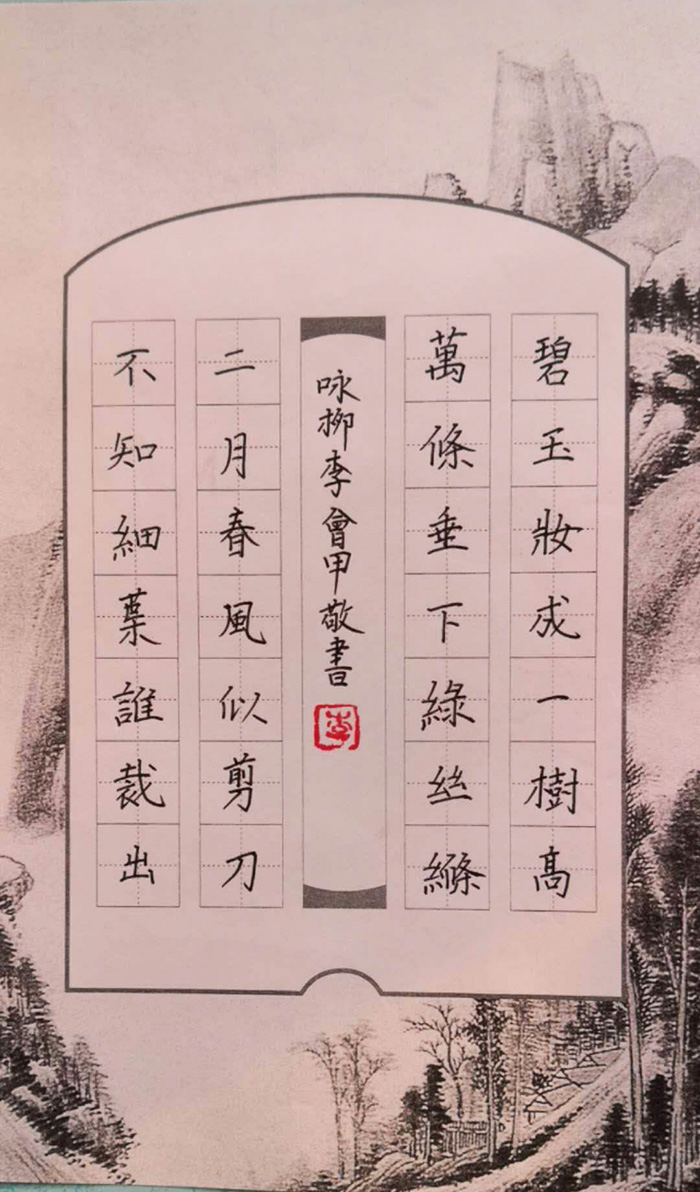 碧玉妝成一樹高
萬條垂下綠丝縧
咏柳李會甲敬書
李
二月春風似剪刀
不知細葉誰裁出